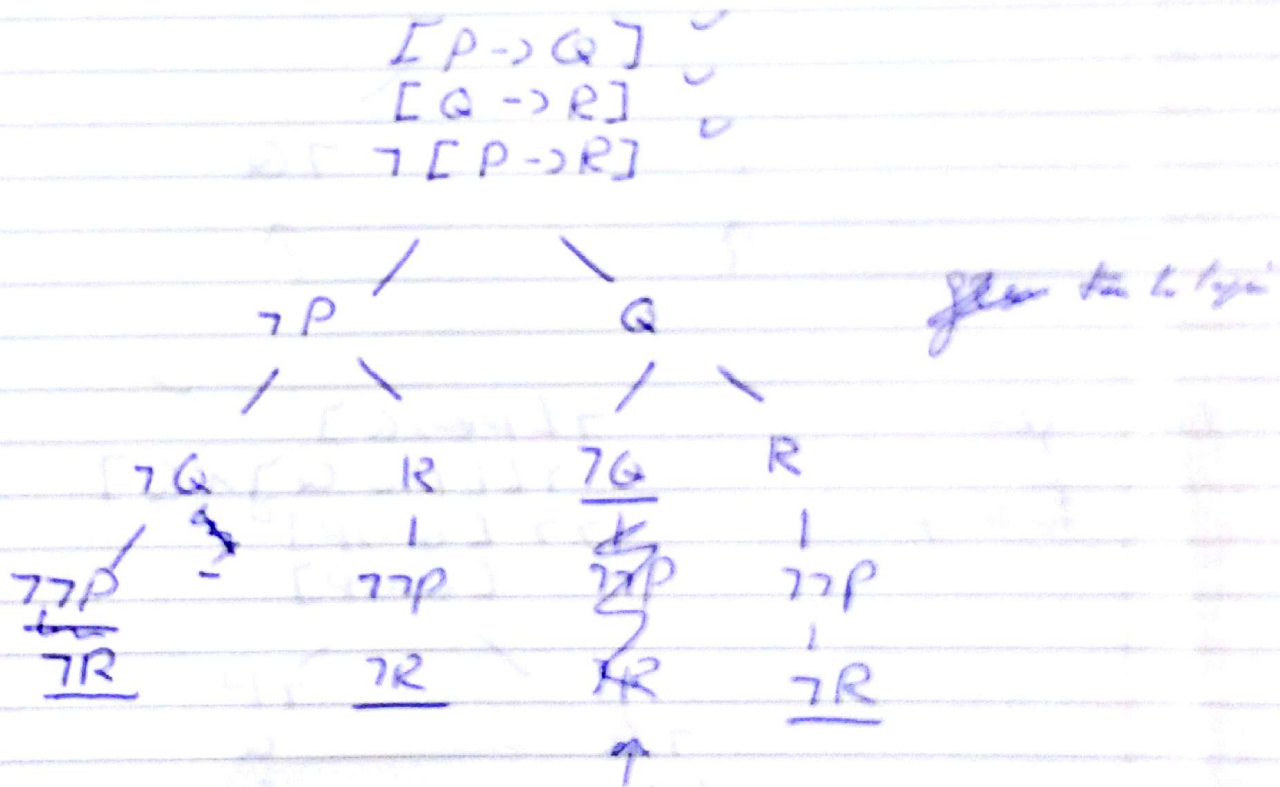 [P->Q] ✓
[Q->R] ✓
¬[P->R] ✓
¬P Q
¬Q R ¬Q R
¬¬P ¬¬P ¬¬P ¬¬P
¬R ¬R ¬R ¬R